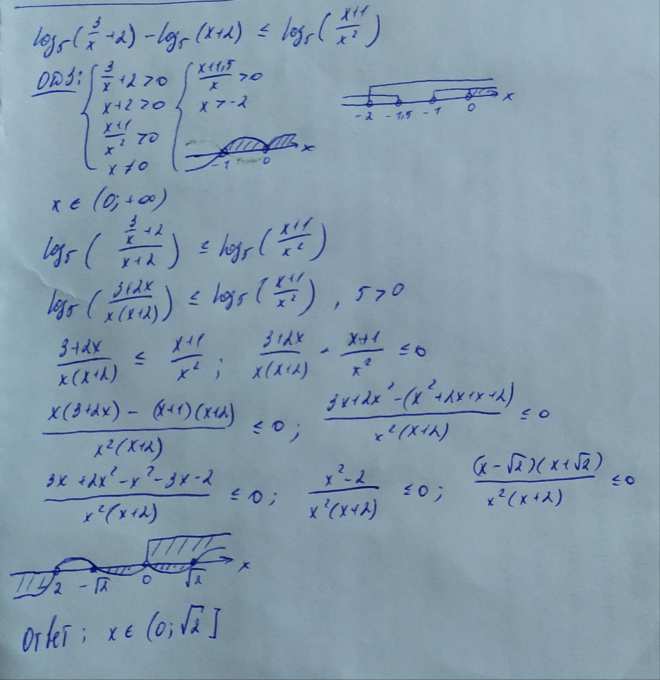 log₅(3/x + 2) - log₅(x+2) ≤ log₅((x+1)/x²)
ОДЗ: { 3/x + 2 > 0 { (x+1,5)/x > 0
x+2 > 0 x > -2
(x+1)/x² > 0
x ≠ 0
-1 0 x
-2 -1,5 -1 0 x
x ∈ (0; +∞)
log₅((3/x + 2)/(x+2)) ≤ log₅((x+1)/x²)
log₅((3+2x)/(x(x+2))) ≤ log₅((x+1)/x²), 5 > 0
(3+2x)/(x(x+2)) ≤ (x+1)/x²; (3+2x)/(x(x+2)) - (x+1)/x² ≤ 0
(x(3+2x) - (x+1)(x+2))/(x²(x+2)) ≤ 0; (3x+2x² - (x²+2x+x+2))/(x²(x+2)) ≤ 0
(3x+2x²-x²-3x-2)/(x²(x+2)) ≤ 0; (x²-2)/(x²(x+2)) ≤ 0; ((x-√2)(x+√2))/(x²(x+2)) ≤ 0
-2 -√2 0 √2 x
Ответ; x ∈ (0; √2]